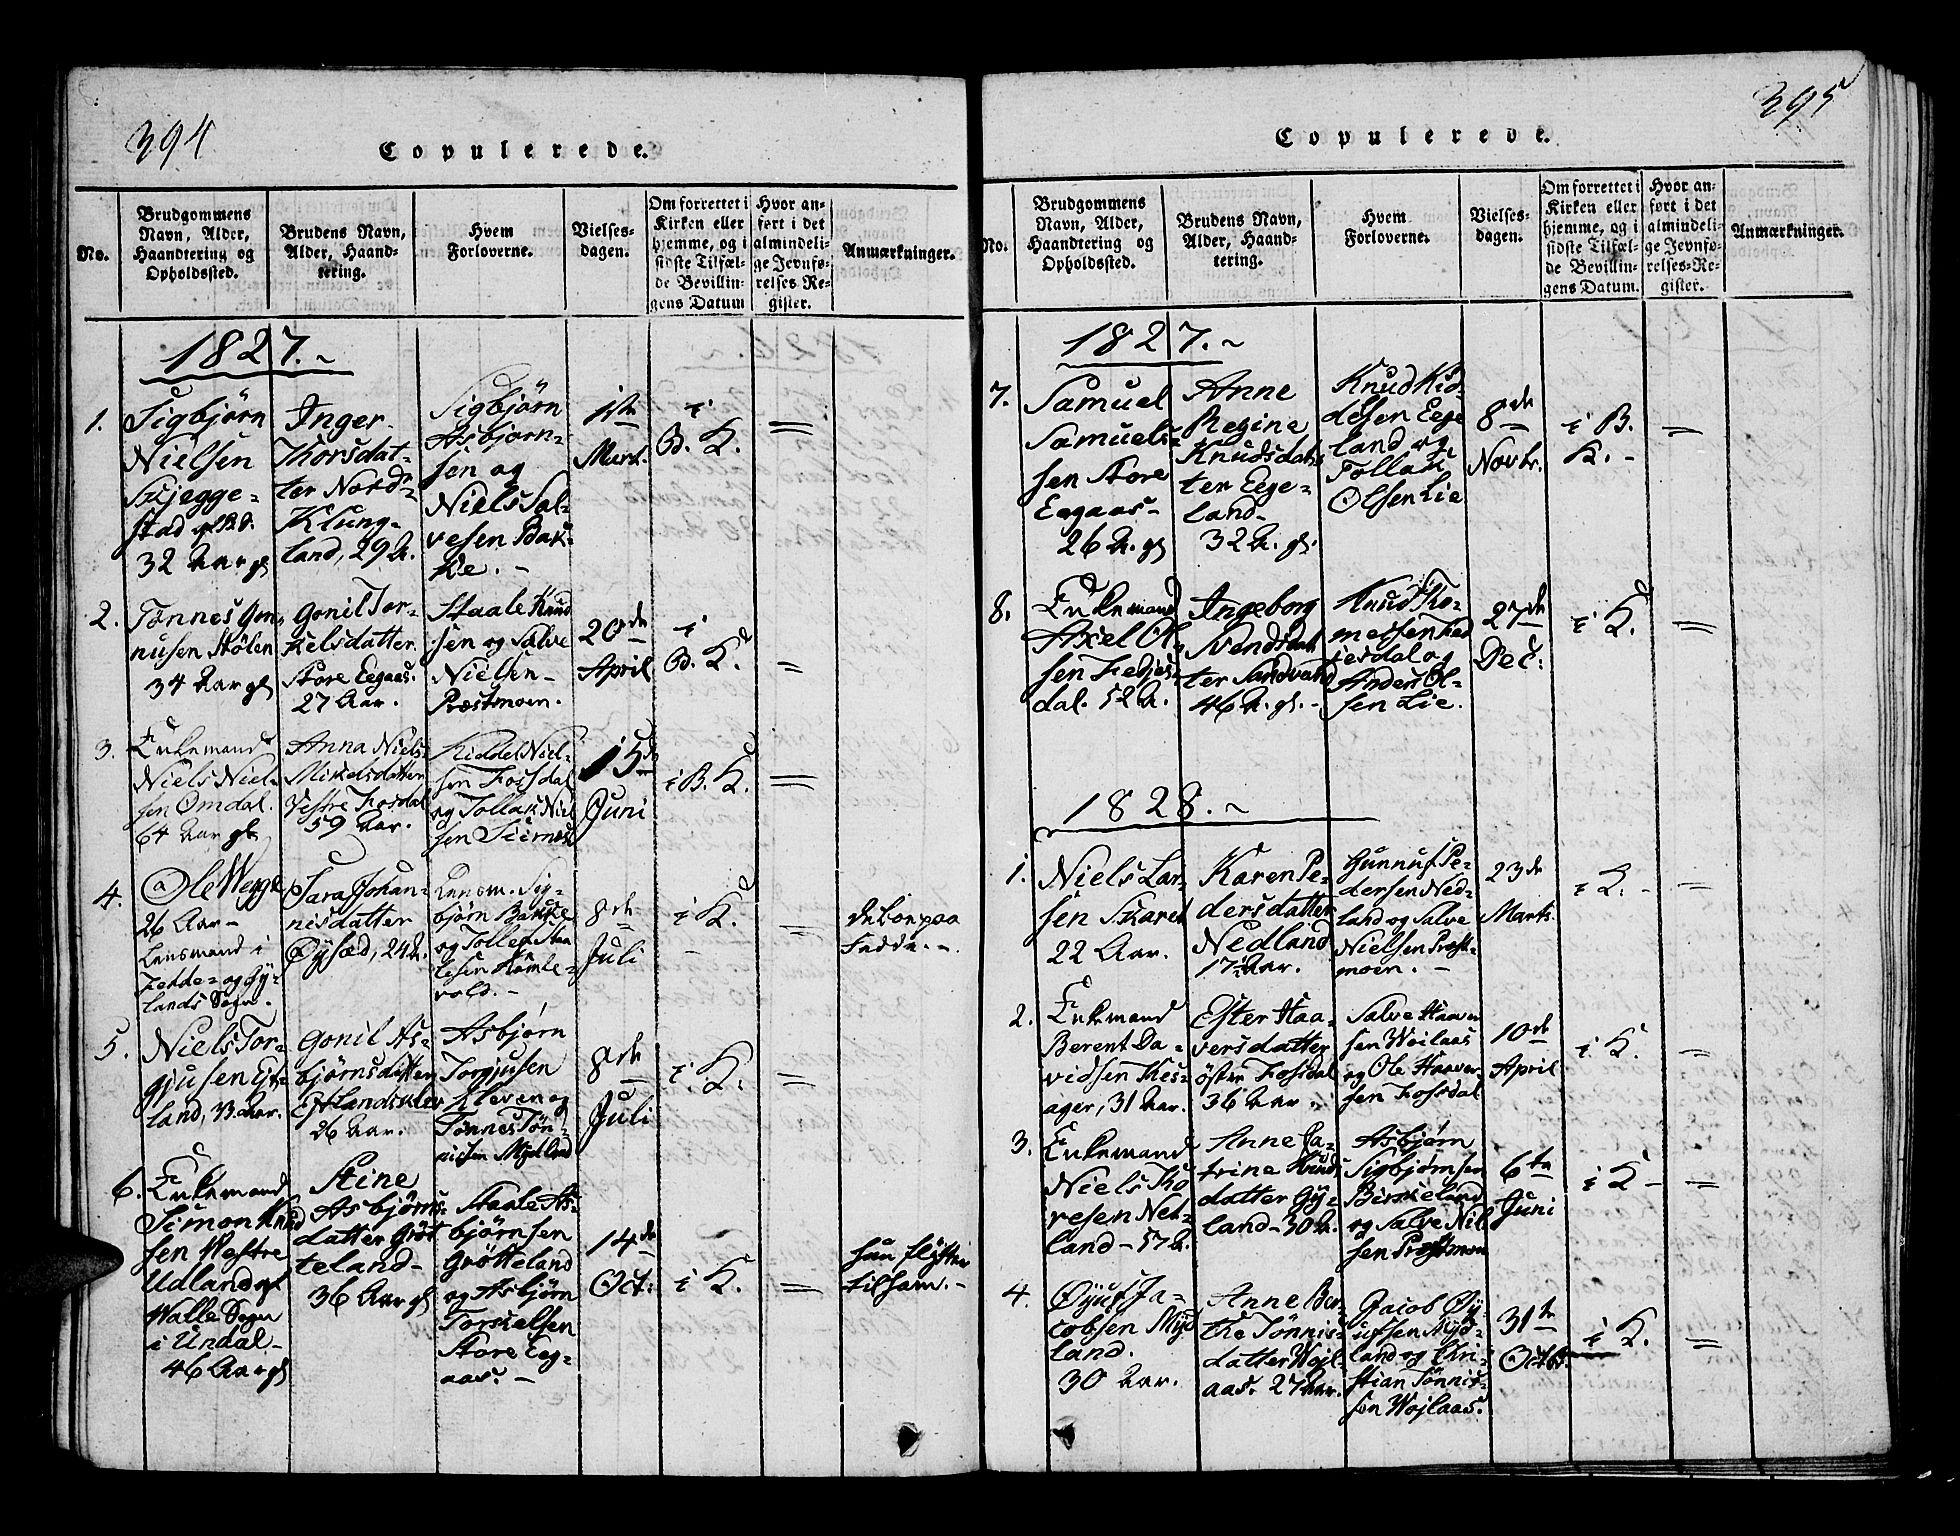 394
Copulerede.
No.
Brudgommens
Navn, Alder,
Haandtering og
Opholdssted.
Brudens Navn,
Alder, Haand-
tering.
Hvem
Forloverne.
Vielses-
dagen.
Om forrettet i
Kirken eller
hjemme, og i
sidste Tilfæl-
de Bevillin-
gens Datum
Hvor an-
ført i det
almindeli-
ge Jevnfø-
relses-Re-
gister.
Anmærkninger.
1827.~
1.
Sigbjørn
Nielsen
Skjegge=
stad
32 Aar gl
Inger
Thorsdat-
ter Nordr-
Klung-
land, 29 A.
Sigbjørn
Asbjørn-
sen og
Niels Sal-
vesen Bak-
ke. -
1ste
Mart.
i
B. K.
=
2.
Tønnes Gon-
nusen Stølen
34 Aar gl
Gonil Tor-
kelsdatter
Store Eegaas.
27 Aar.
Staale Knud
sen og Salve
Nielsen -
Præstmoen.
20de
April
i
B. K.
=
3.
Enkemand
Niels Niel-
sen Omdal.
64 Aar gl
Anna Niels-
Mikelsdatter
Vestre Fosdal
59 Aar.
Kiddel Niel-
sen Fosdal
og Tollak Niel
sen
15de
Juni
i B. K.
=
4.
Ole Wegge
26 Aar -
Lensmand i
Fedde- og Gy-
lands Sogn.
Sara Johan-
nisdatter
Øysæd, 24 A.
Lensm. Sig-
bjørn Bakke
og Tollef Staa
lesen Komle-
vold. -
8de
Juli
i K.
-
de boe paa
Fedde. -
5.
Niels Tor-
gjusen Eft-
land, Aar.
Gonil As-
bjørnsdatter
Eftlandsklev
26 Aar.
Asbjørn
Torgjusen
Kleven og
Tønnes Tøn-
nisen Mydland
8de
Juli
i K.
=
6.
Enkemand
Simon Knud
sen Westre
Udland af
Walle Sogn
i Undal -
46 Aar gl
Stine
Asbjørns-
datter Grøt
teland -
36 Aar gl
Staale As-
bjørnsen
Grøtteland
og Asbjørn
Torkelsen
Store Eeg-
aas. -
14de
Oct:
i K.
=
hun flytter
til ham. -
395
Copulerede.
No.
Brudgommens
Navn, Alder,
Haandtering og
Opholdssted.
Brudens Navn,
Alder, Haand-
tering.
Hvem
Forloverne.
Vielses-
dagen.
Om forrettet i
Kirken eller
hjemme, og i
sidste Tilfæl-
de Bevillin-
gens Datum.
Hvor an-
ført i det
almindeli-
ge Jevnfø-
relses-Re-
gister.
Anmærkninger.
1827.~
7.
Samuel
Samuels-
sen Store
Eegaas -
26 A. gl
Anne
Regine
Knudsdat-
ter Eege-
land -
32 A. gl.
Knud Kid-
delsen Eege
land og
Tollak
Olsen Lie
8de
Novbr.
i B.
K. -
=
8.
Enkemand
Axel Ol-
sen Fedjes-
dal. 52 A.
Ingeborg
Svendsdat
ter Sandvand
46 A. gl. -
Knud To-
messen Fed
jesdal og
Anders Ol-
sen Lie.
27de
Dec:
i K.
=
1828.~
1.
Niels Lar-
sen Skaret
22 Aar.
Karen Pe-
dersdatter
Nedland
17 Aar.
Gunnuf Pe-
dersen Ned-
land og Salve
Nielsen Præst-
moen. -
23de
Marts.
i K. -
=
2.
Enkemand
Berent Da-
vidsen Kes-
ager, 31 Aar.
Ester Haa-
versdatter
øster Fosdal
36 Aar.
Salve Haaver
sen Woilaas
og Ole Haaver-
sen Fossdal
10de
April
i K.
=
3.
Enkemand
Niels To
resen Net-
land - 57 A.
Anne Ca-
trine Knuds
datter Gy-
land - 30 A.
Asbjørn
Sigbjørnsen
Birkeland
og Salve Niel
sen Præstmoen
6te
Juni
i K -
=
4.
Øyuf Ja-
cobsen Myd
land.
30 Aar.
Anne Ber-
the Tønnis-
datter Wojl-
aas. 27 Aar.
Jacob Øy-
ufsen Myd-
land og Chri-
stian Tønnis-
sen Wojlaas.
31te
Octbr
i K.
=